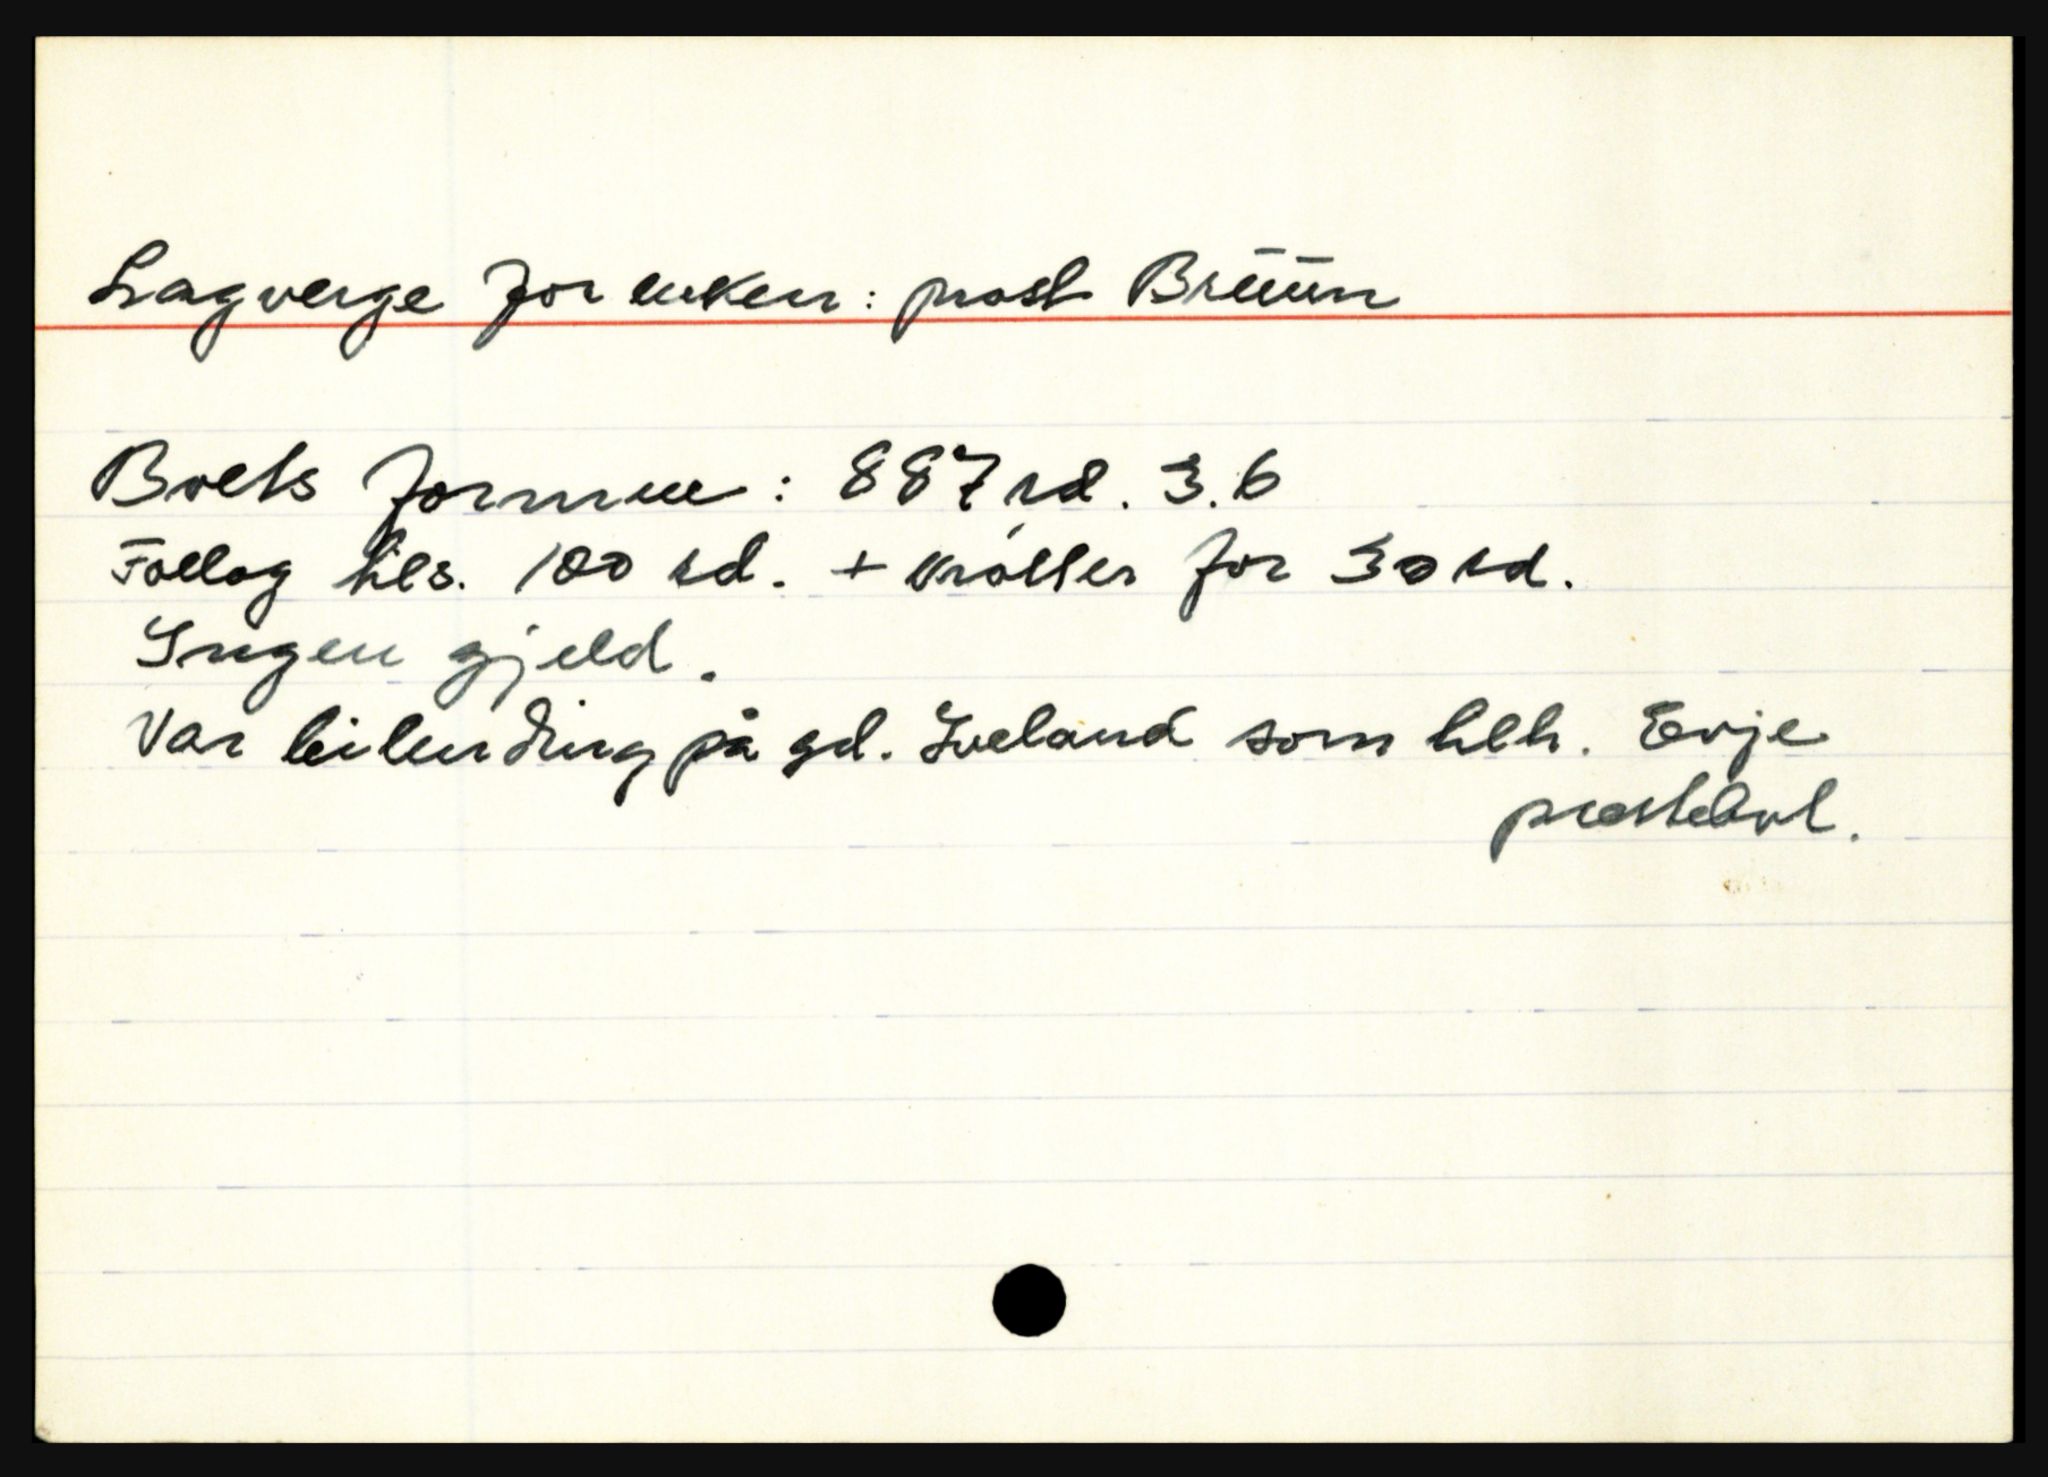 Lagverge for enken: prost Brūūn
Boets formue: 887 rd. 3.6
Follog tils. 100 rd. + kvæller for 30 rd.
Ingen gjeld.
Var leilending på gd. Iveland som tilh. Evje
prestebol.